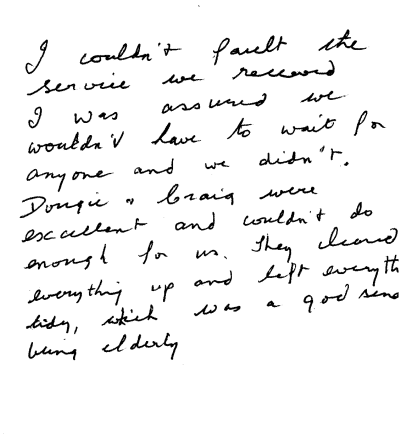 I couldn't fault the
service we received
I was assured we
wouldn't have to wait for
anyone and we didn't.
Dougie & Craig were
excellent and couldn't do
enough for us. They cleared
everything up and left everyth
tidy, which was a god send
being elderly